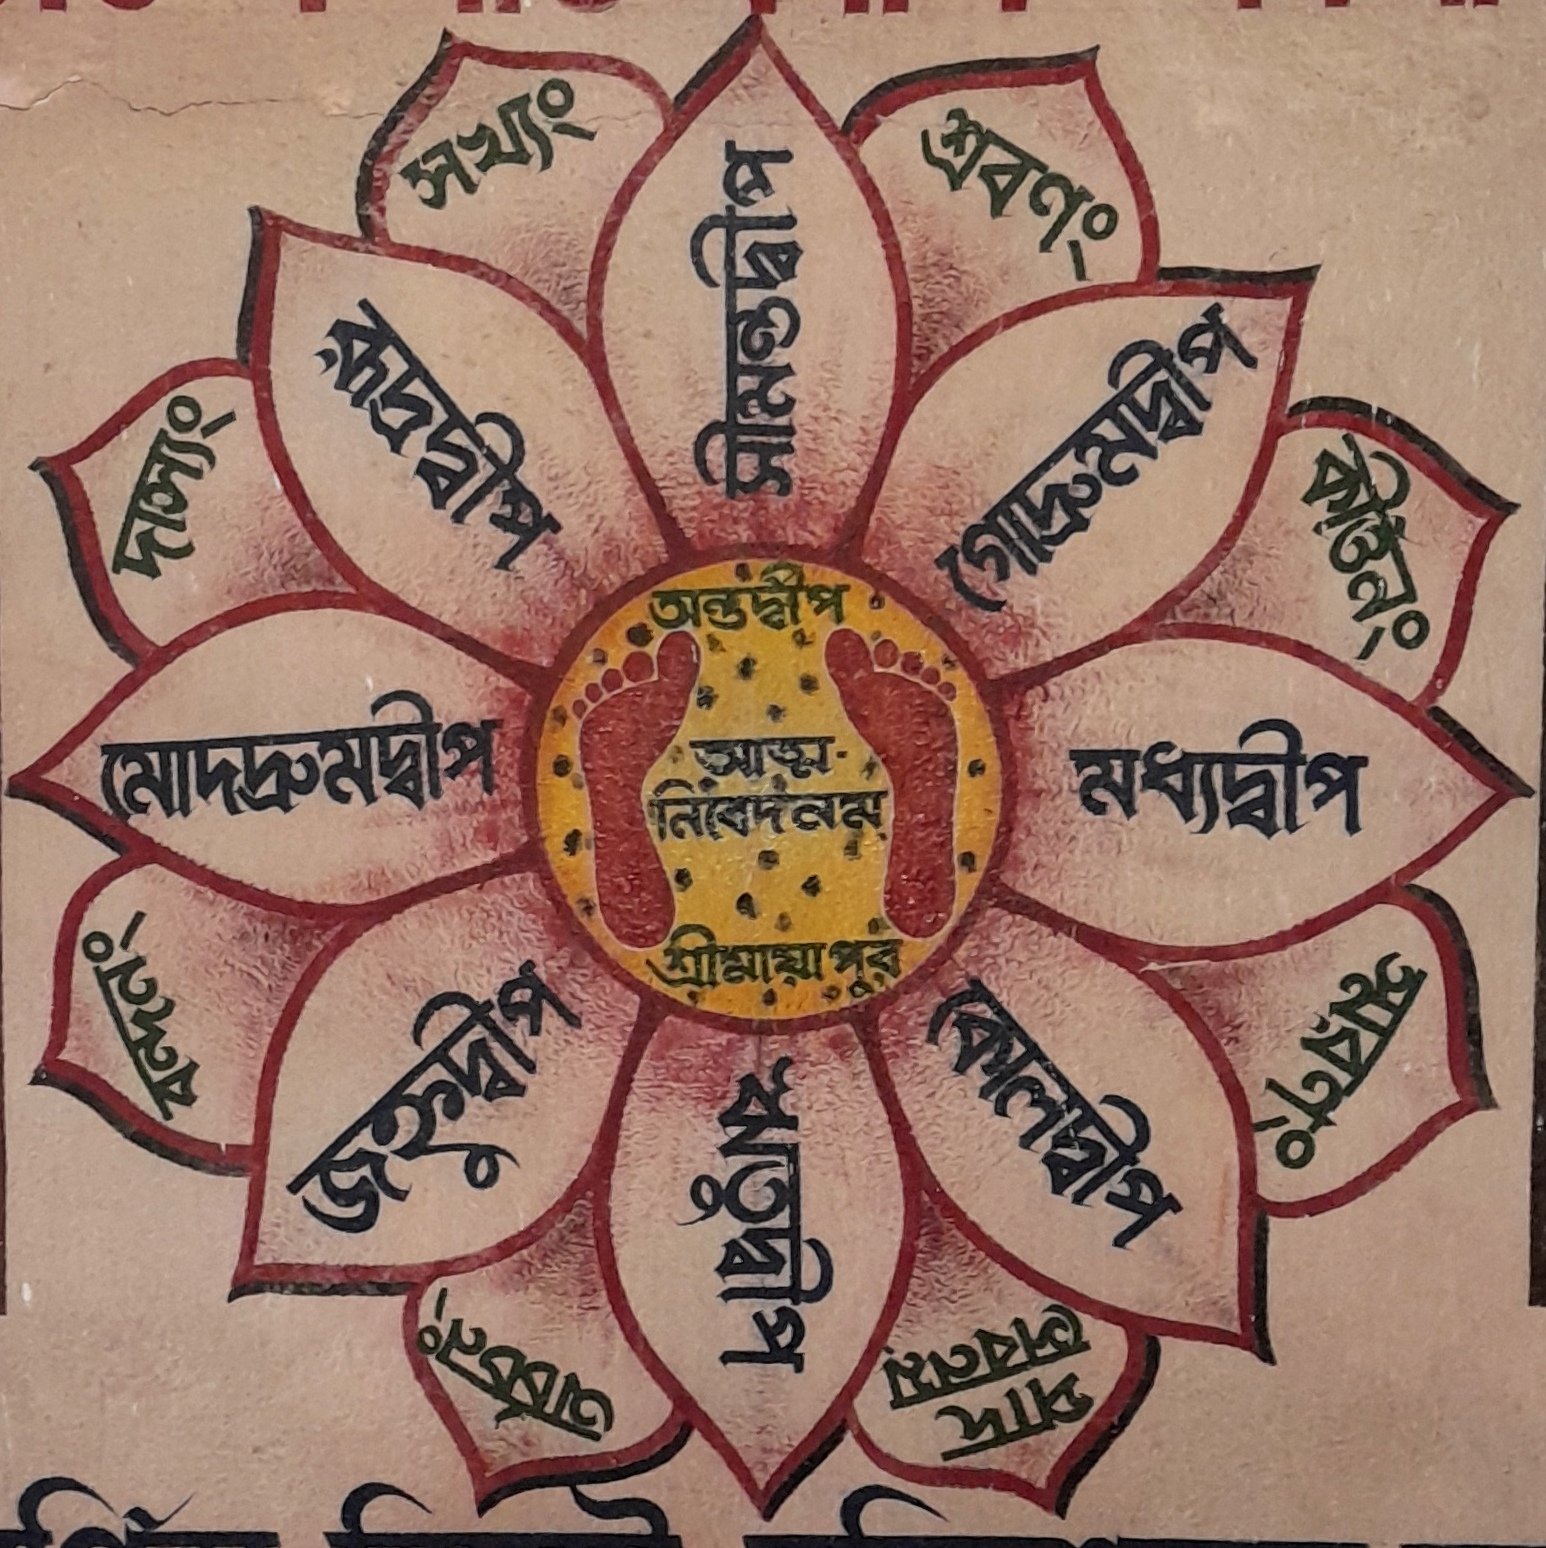 সীমন্তদ্বীপ
শ্রবণং
গোদ্রুমদ্বীপ
কীর্ত্তনং
মধ্যদ্বীপ
স্মরণং
কোলদ্বীপ
পাদ
সেবনম্
ঋতুদ্বীপ
অর্চ্চনং
জহ্নুদ্বীপ
বন্দনং
মোদদ্রুমদ্বীপ
দাস্যং
রুদ্রদ্বীপ
সখ্যং
অন্তদ্বীপ
আত্ম-
নিবেদনম
শ্রীমায়াপুর